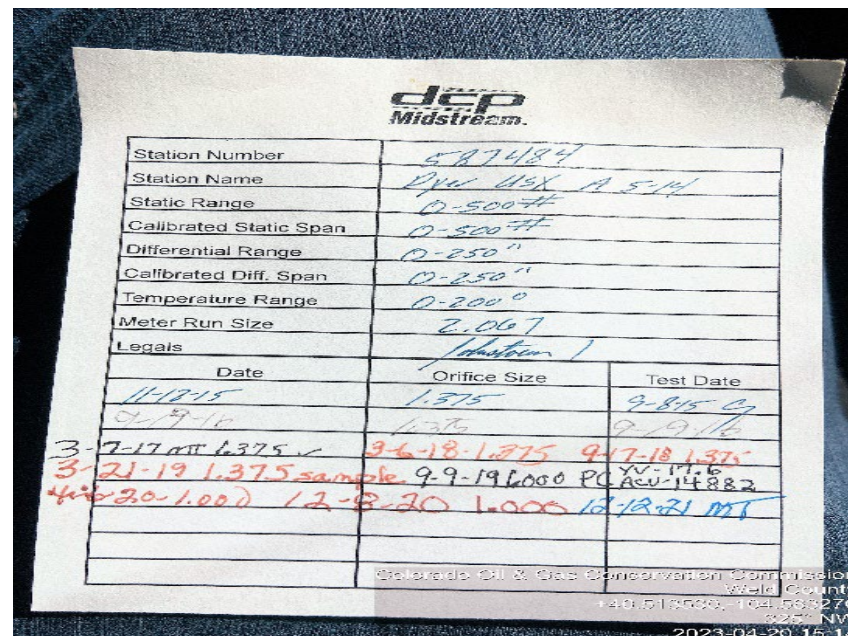 dcp
Midstream.
Station Number 587484
Station Name Dyer USX A 5-14
Static Range 0-500#
Calibrated Static Span 0-500#
Differential Range 0-250"
Calibrated Diff. Span 0-250"
Temperature Range 0-200°
Meter Run Size 2.067
Legals Johnstown 1
Date Orifice Size Test Date
11-18-15 1.375 9-8-15
9-19-16 1.375 9-19-16
3-7-17 MT 1.375 3-6-18-1.375 9-17-18 1.375
3-21-19 1.375 sample 9-9-19 1.000 PC YV-17.6 ACU-14882
20-1.000 12-8-20 1.000 12-12-21 MT
Colorado Oil & Gas Conservation Commission
Weld County
+40.513530,-104.583270
325° NW
2023-04-20 15:1